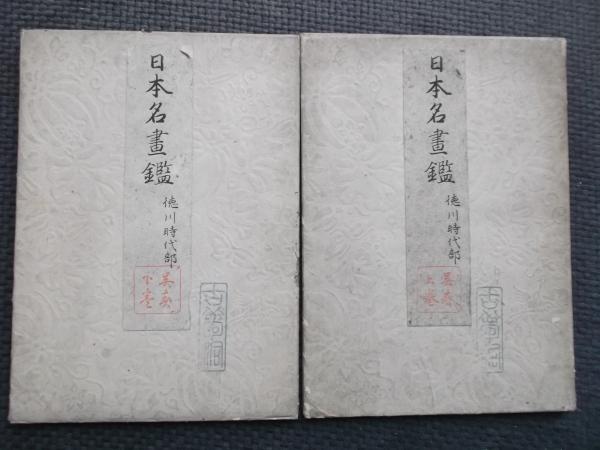 日本名畫鑑
徳川時代部
下巻
日本名畫鑑
徳川時代部
上巻